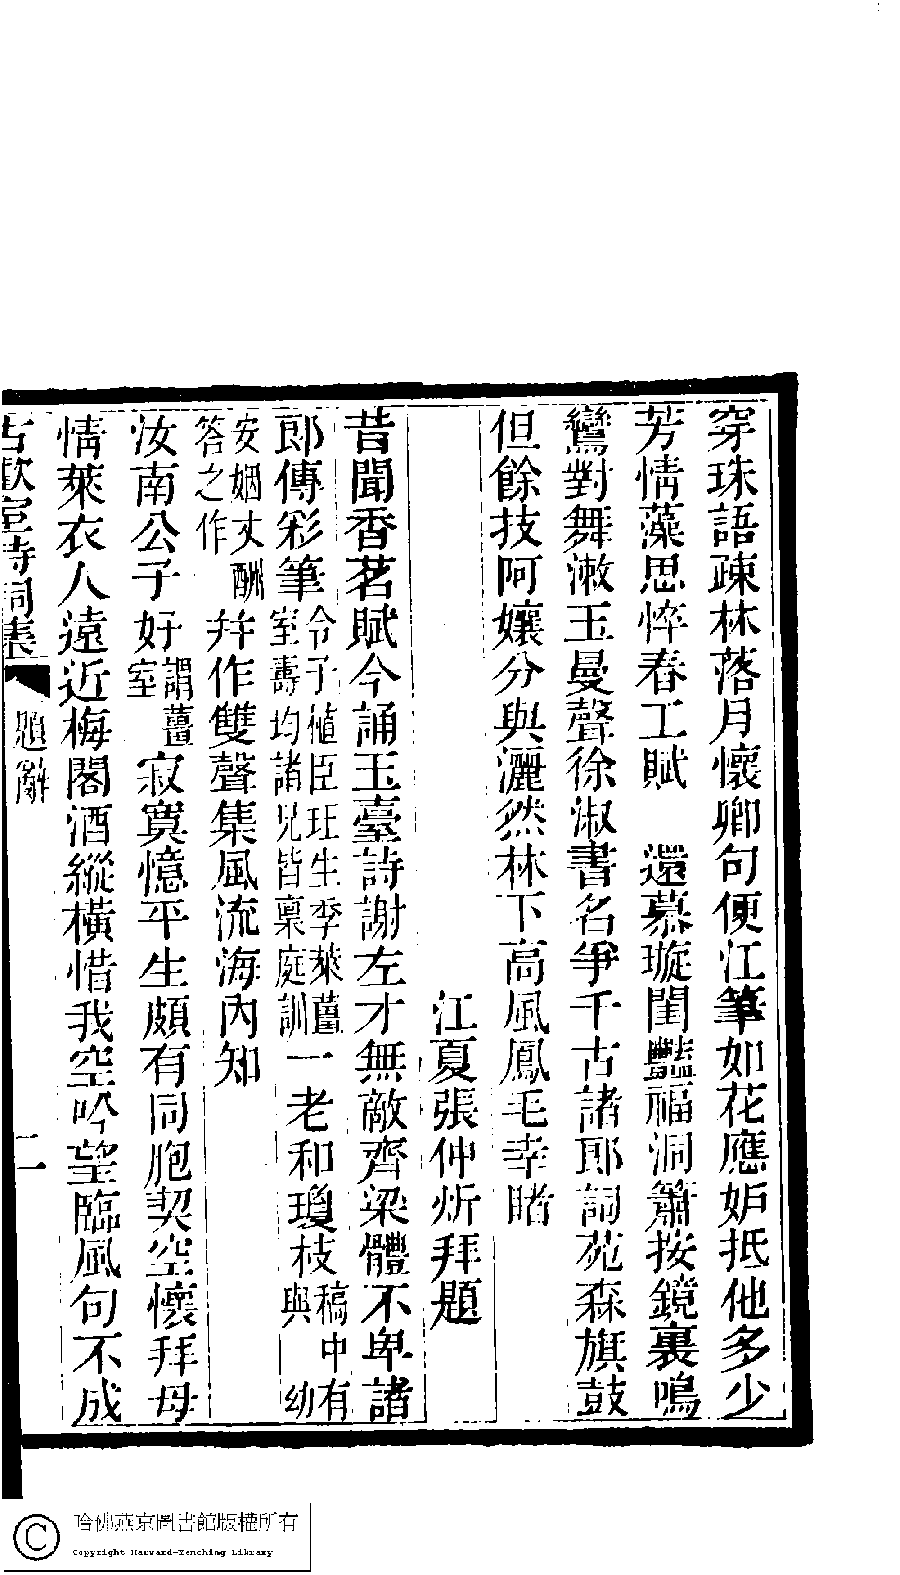 穿珠語疎林落月懷卿句便江筆如花應妒抵他多少
芳情藻思悴春工賦　還慕璇閨豔福洞簫按鏡裏鳴
鸞對舞漱玉曼聲徐淑書名爭千古諸郎詞苑森旗鼓
但餘技阿孃分與灑然林下高風鳳毛幸睹
江夏張仲炘拜題
昔聞香茗賦今誦玉臺詩謝左才無敵齊梁體不卑諸
郎傳彩筆令子植臣班生季萊薑室壽均諸兄皆稟庭訓一老和瓊枝稿中有與幼
安姻丈酬答之作幷作雙聲集風流海內知
汝南公子好謂薑室寂寞憶平生頗有同胞契空懷拜母
情萊衣人遠近梅閣酒縱橫惜我空吟望臨風句不成
古歡室詩詞集　題辭　二
哈佛燕京圖書館版權所有
Copyright Harvard-Yenching Library